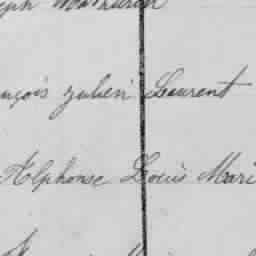 eph Mathurin
nçois Julien Laurent
Alphonse Louis Mari